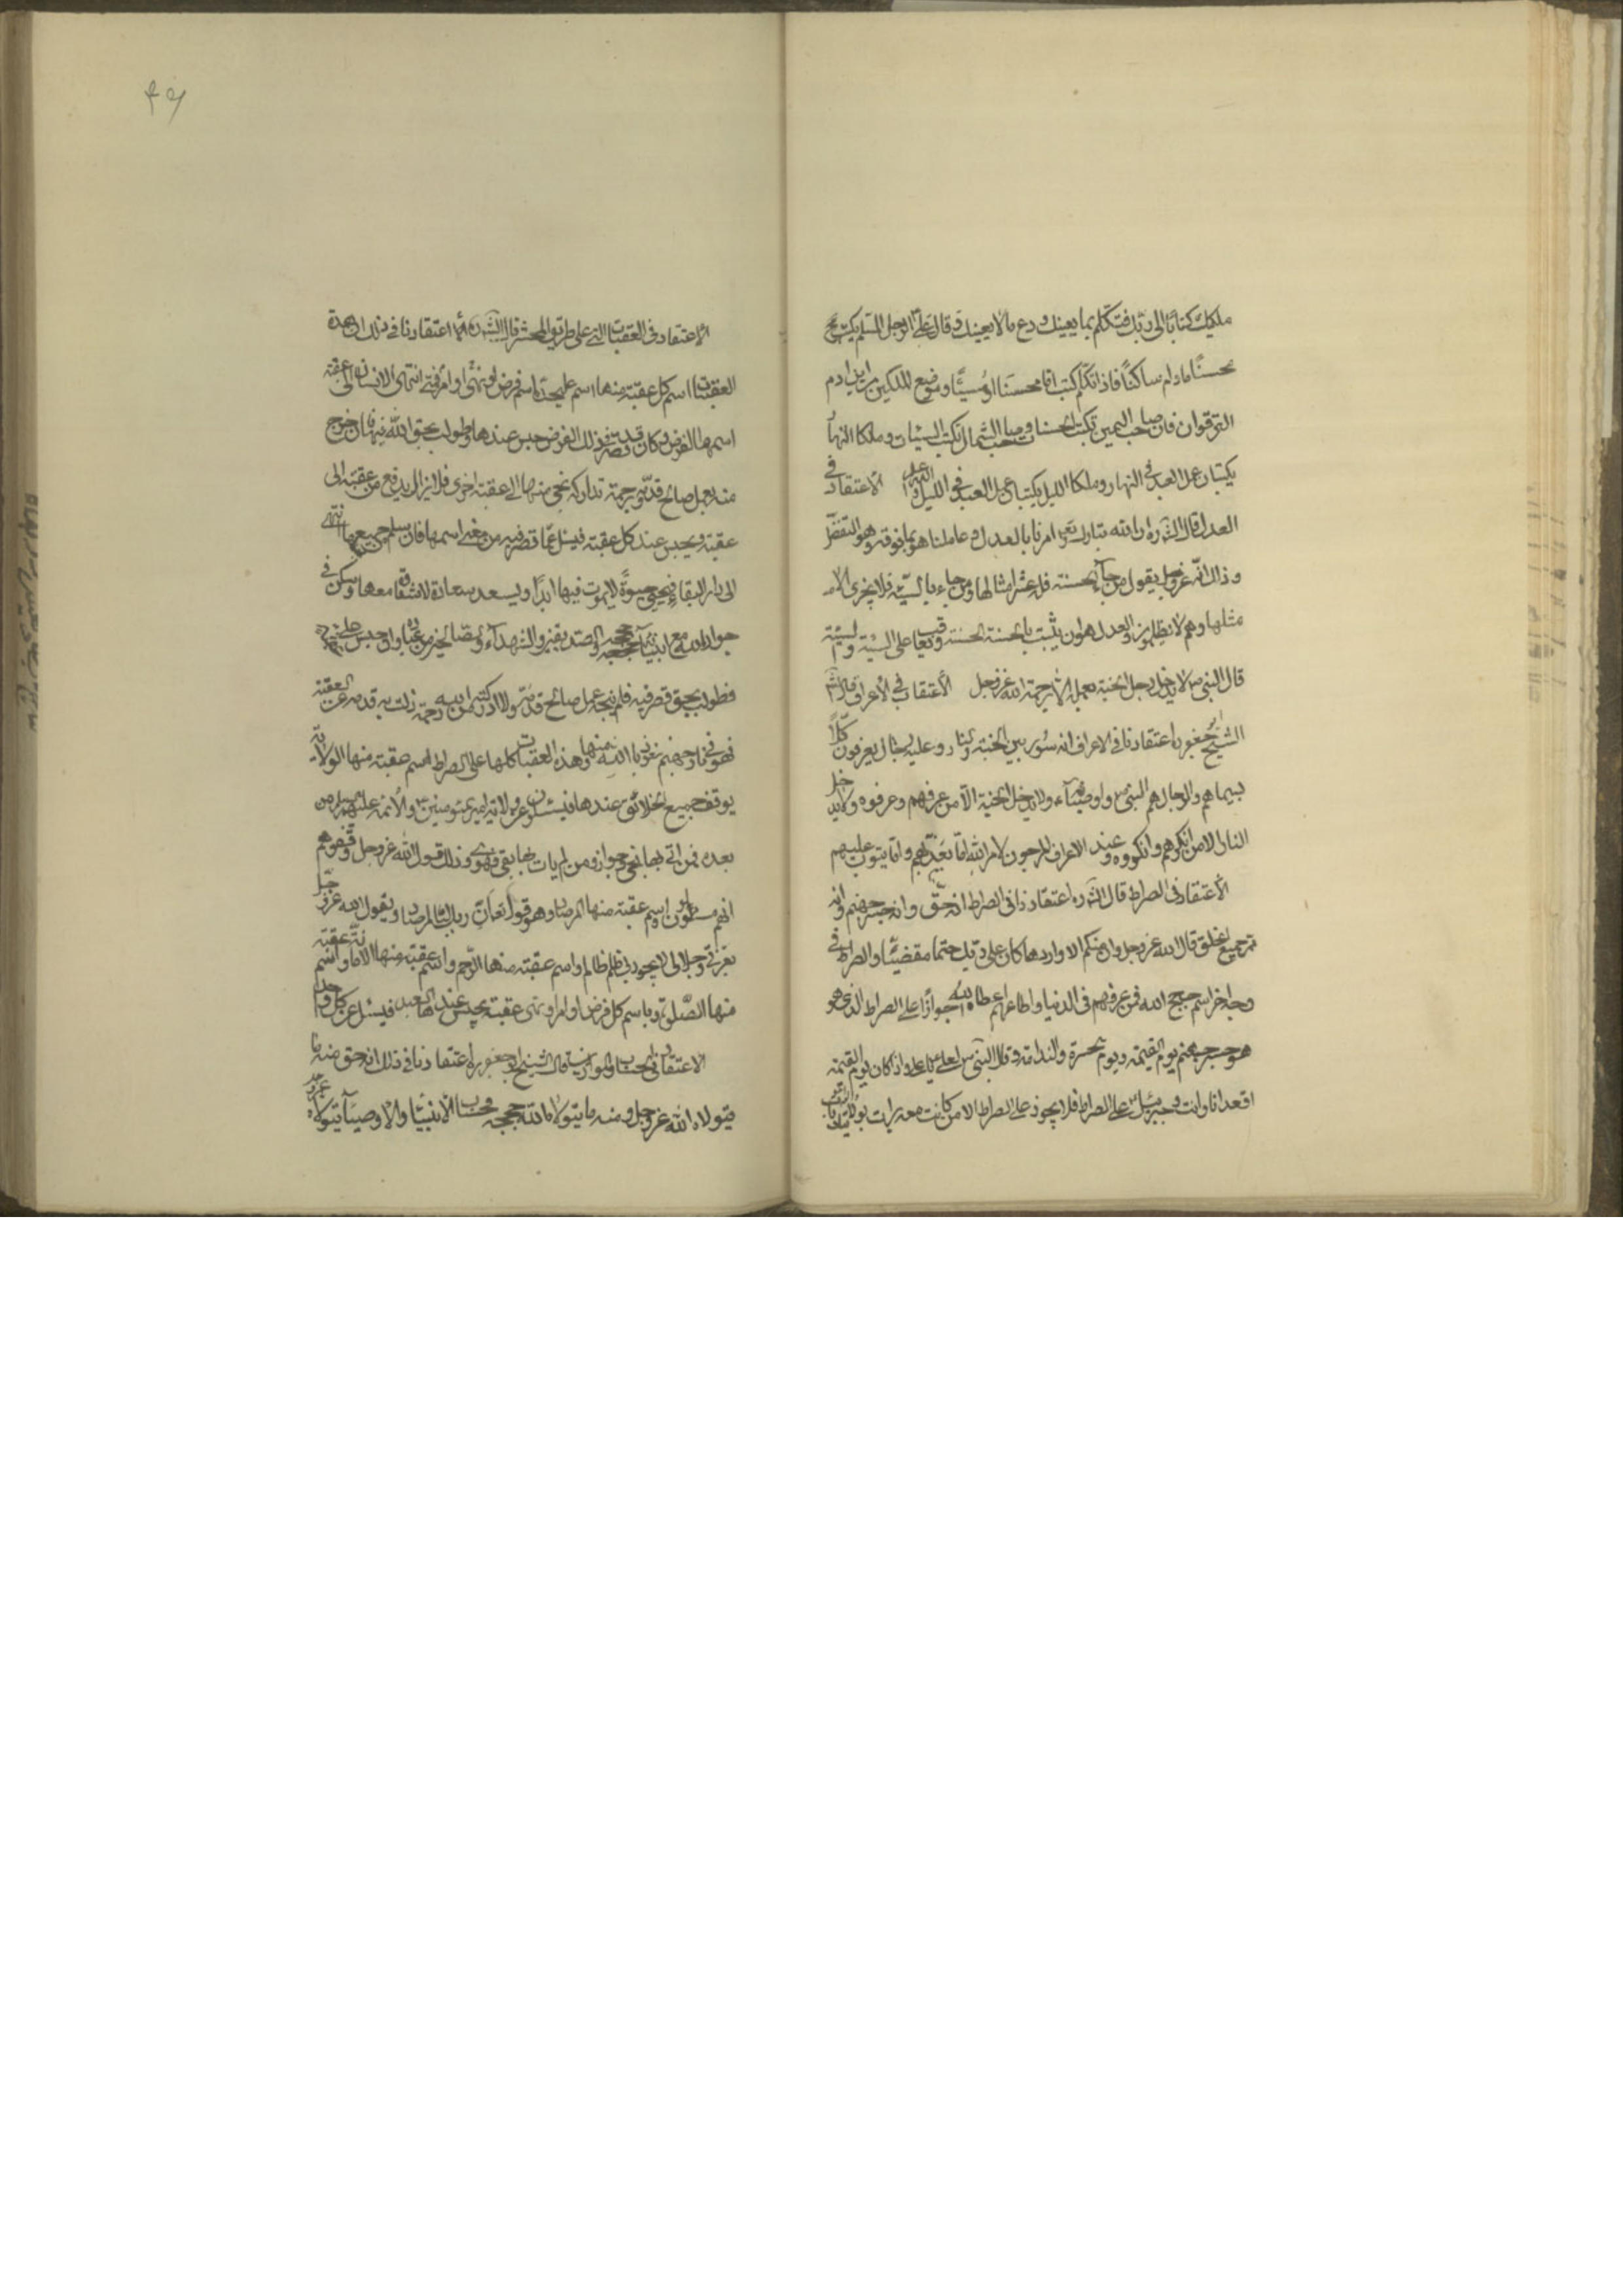 ملكيك كتابا الى ربك فتكلم بما يعينك ودع ما لا يعينك وقال على الرجل المسلم يكتب
محسنًا مادام ساكتًا فاذا تكلم كتب اما محسنا او مسيئًا وموضع الملكين من ابن ادم
الترقوتان فان صاحب اليمين يكتب الحسنات وصاحب الشمال يكتب السيئات وملكا النهار
يكتبان عمل العبد فى النهار وملكا الليل يكتبان عمل العبد فى الليل الاعتقاد فى
العدل قال الشيخ ره ان الله تبارك وتعالى امرنا بالعدل وعاملنا بما هو فوقه وهو التفضل
وذلك انه عز وجل يقول من جاء بالحسنة فله عشر امثالها ومن جاء بالسيئة فلا يجزى الا
مثلها وهم لا يظلمون والعدل هو ان يثيب بالحسنة الحسنة ويعاقب على السيئة بالسيئة
قال النبى ص لا يدخل رجل الجنة بعمله الا برحمة الله عز وجل الأعتقاد فى الأعراف قال
الشيخ جعفر ره اعتقادنا فى الاعراف انه سور بين الجنة والنار وعليه رجال يعرفون كلاً
بسيماهم والرجال هم النبى واوصيائه ولا يدخل الجنة الا من عرفهم وعرفوه ولا يدخل
النار الا من انكرهم وانكروه وعند الاعراف المرجون لامر الله اما يعذبهم واما يتوب عليهم
الأعتقاد فى الصراط قال الشيخ ره اعتقادنا فى الصراط انه حق وانه جسر جهنم وانه
ممر جميع الخلق قال الله عز وجل وان منكم الا واردها كان على ربك حتما مقضيًّا والصراط فى
وجه اخر اسم حجج الله فمن عرفهم فى الدنيا واطاعهم اعطاه الله جوازًا على الصراط الذى هو
هو جسر جهنم يوم القيمة ويوم الحسرة والندامة وقال النبى ص لعلى يا على اذا كان يوم القيمة
اقعد انا وانت وجبرئيل على الصراط فلا يجوز على الصراط الا من كانت معه براءة بولايتك
۴۹
الأعتقاد فى العقبات التى على طريق المحشر قال الشيخ ره اعتقادنا فى ذلك ان هذه
العقبات اسم كل عقبة منها اسم على حدة اسم فرض او نهى او امر فمتى انتهى الانسان الى عقبة
اسمها الفرض وكان قد قصر فى ذلك الفرض حبس عندها وطولب بحق الله فيها فان خرج
منه بعمل صالح قدمه او برحمة تداركه نجى منها الى عقبة اخرى فلا يزال يدفع من عقبة الى
عقبة ويحبس عند كل عقبة فيسئل عما قصر فيه من معنى اسمها فان سلم من جميعها انتهى
الى دار البقاء فيحيى حيوةً لا يموت فيها ابدًا ويسعد سعادة لا شقاوة معها وسكن فى
جوار الله مع انبيائه وحججه والصديقين والشهداء والصالحين من عباده وان حبس على عقبة
فطولب بحق قصر فيه فلم ينجه عمل صالح قدمه ولا ادركته من الله رحمة زلت به قدمه عن العقبة
فهوى فى نار جهنم نعوذ بالله منها وهذه العقبات كلها على الصراط اسم عقبة منها الولاية
يوقف جميع الخلائق عندها فيسئلون عن ولاية امير المؤمنين والأئمة عليهم السلام من
بعده فمن اتى بها نجى وجواز ومن لم يات بها بقى فهوى وذلك قول الله عز وجل وقفوهم
انهم مسئولون واسم عقبة منها المرصاد وهو قوله تعالى ان ربك لبالمرصاد ويقول الله عز وجل
بعزتى وجلالى لا يجوزنى ظلم ظالم واسم عقبة منها الرحم واسم عقبة منها الامانة واسم عقبة
منها الصلوة وباسم كل فرض او امر او نهى عقبة يحبس عندها العبد فيسئل عن كل واحد
الاعتقاد فى الحساب والموازين قال الشيخ ابو جعفر ره اعتقادنا فى ذلك انه حق منه ما
يتولاه الله عز وجل ومنه ما يتولاه حججه فحساب الأنبياء والاوصياء يتولاه عز وجل